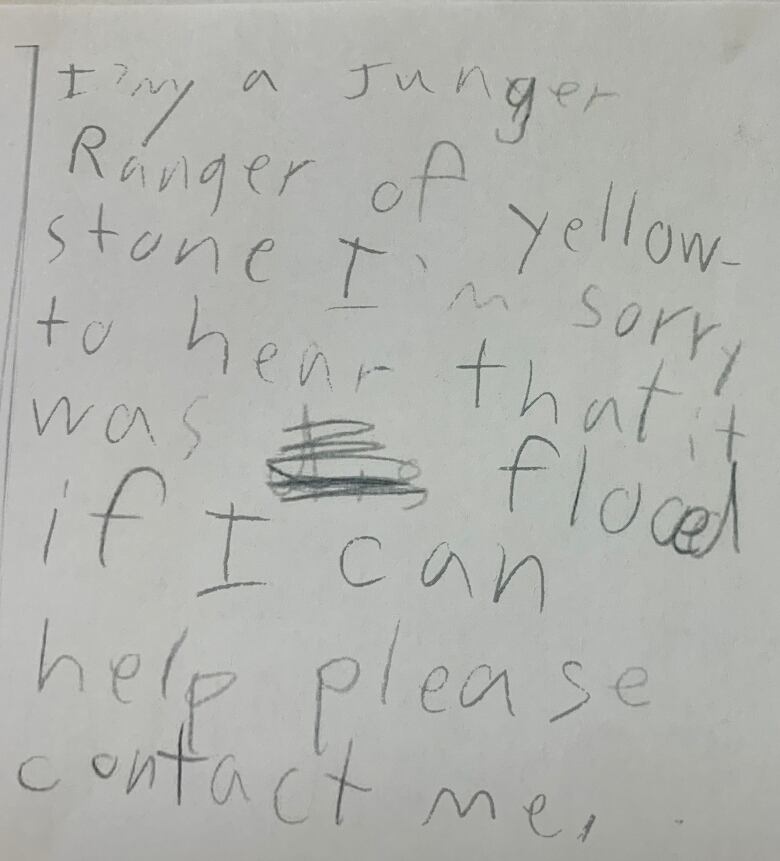 I'my a Junger
Ranger of yellow-
stone I'm sorry
to hear that it
was flooed
if I can
help please
contact me.